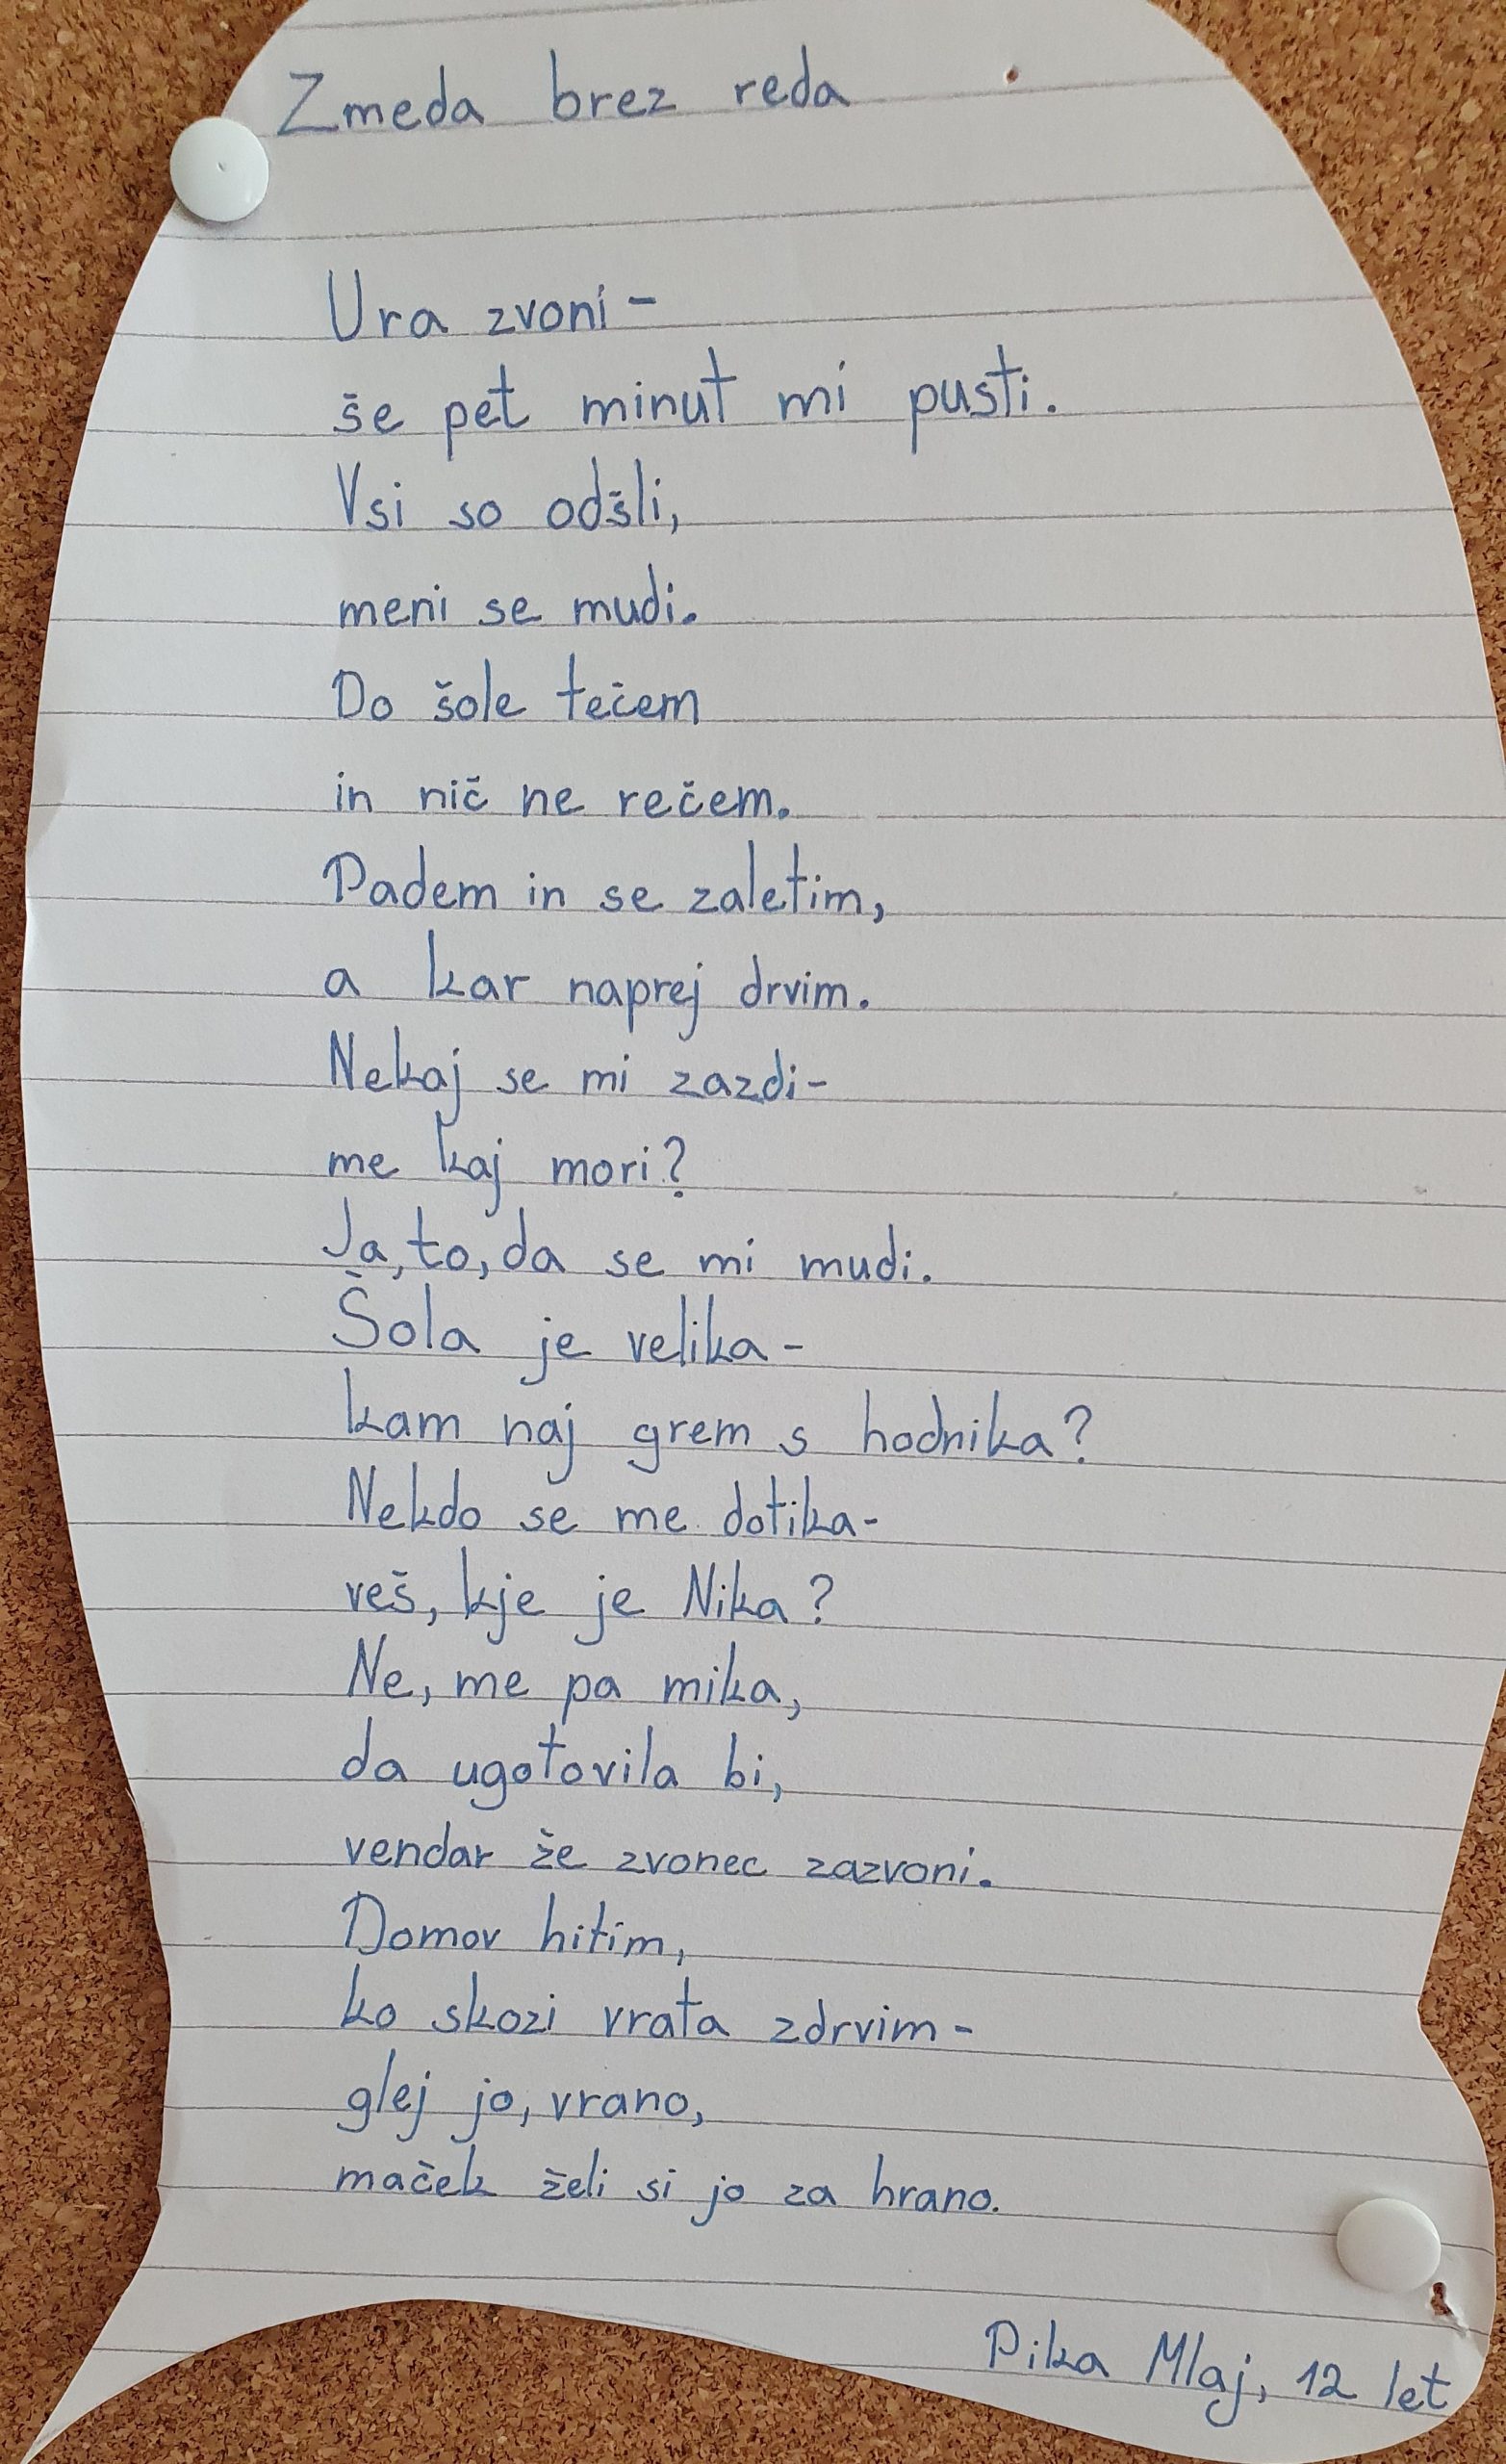 Zmeda brez reda
Ura zvoni -
še pet minut mi pusti.
Vsi so odšli,
meni se mudi.
Do šole tečem
in nič ne rečem.
Padem in se zaletim,
a kar naprej drvim.
Nekaj se mi zazdi -
me kaj mori?
Ja, to, da se mi mudi.
Šola je velika -
kam naj grem s hodnika?
Nekdo se me dotika -
veš, kje je Nika?
Ne, me pa mika,
da ugotovila bi,
vendar že zvonec zazvoni.
Domov hitim,
ko skozi vrata zdrvim -
glej jo, vrano,
maček želi si jo za hrano.
Pika Mlaj, 12 let